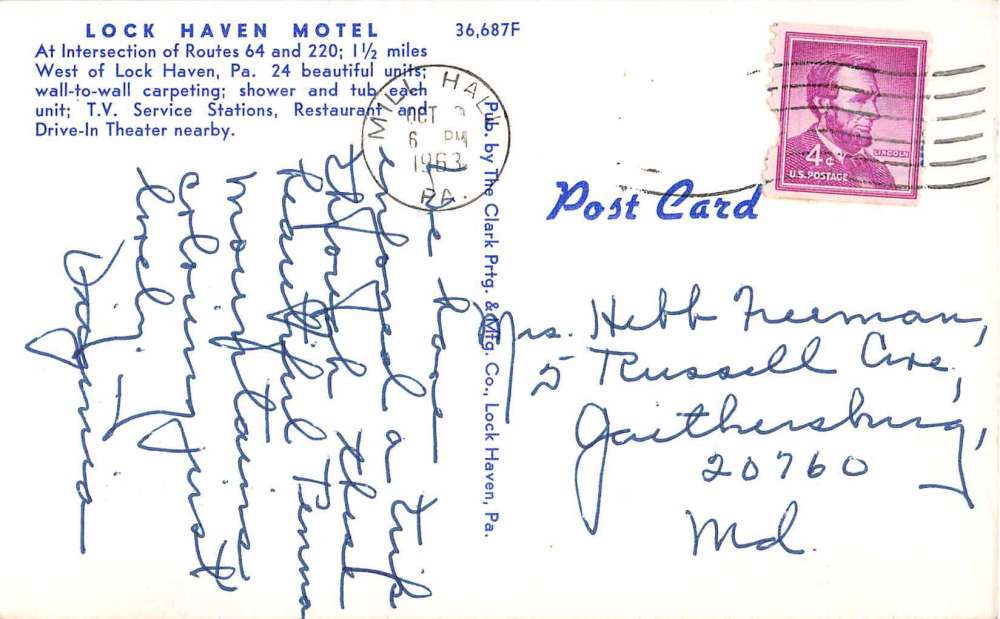 LOCK HAVEN MOTEL
36,687F
At Intersection of Routes 64 and 220; 1½ miles
West of Lock Haven, Pa. 24 beautiful units;
wall-to-wall carpeting; shower and tub each
unit; T.V. Service Stations, Restaurant and
Drive-In Theater nearby.
MILL HALL
OCT
6 PM
1963
PA.
4¢
LINCOLN
U.S. POSTAGE
Post Card
Pub. by The Clark Prtg. & Mfg. Co., Lock Haven, Pa.
We have
enjoyed a trip
through these
beautiful Penna
mountains
coloring just
lovely.
Virginia
Mrs. Hebb Freeman,
5 Russell Ave,
Gaithersburg,
20760
Md.